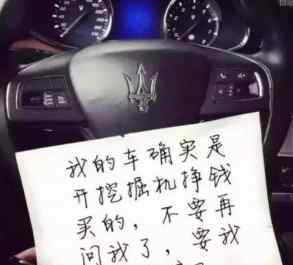 我的车确实是
开挖掘机挣钱
买的，不要再
问我了，要我